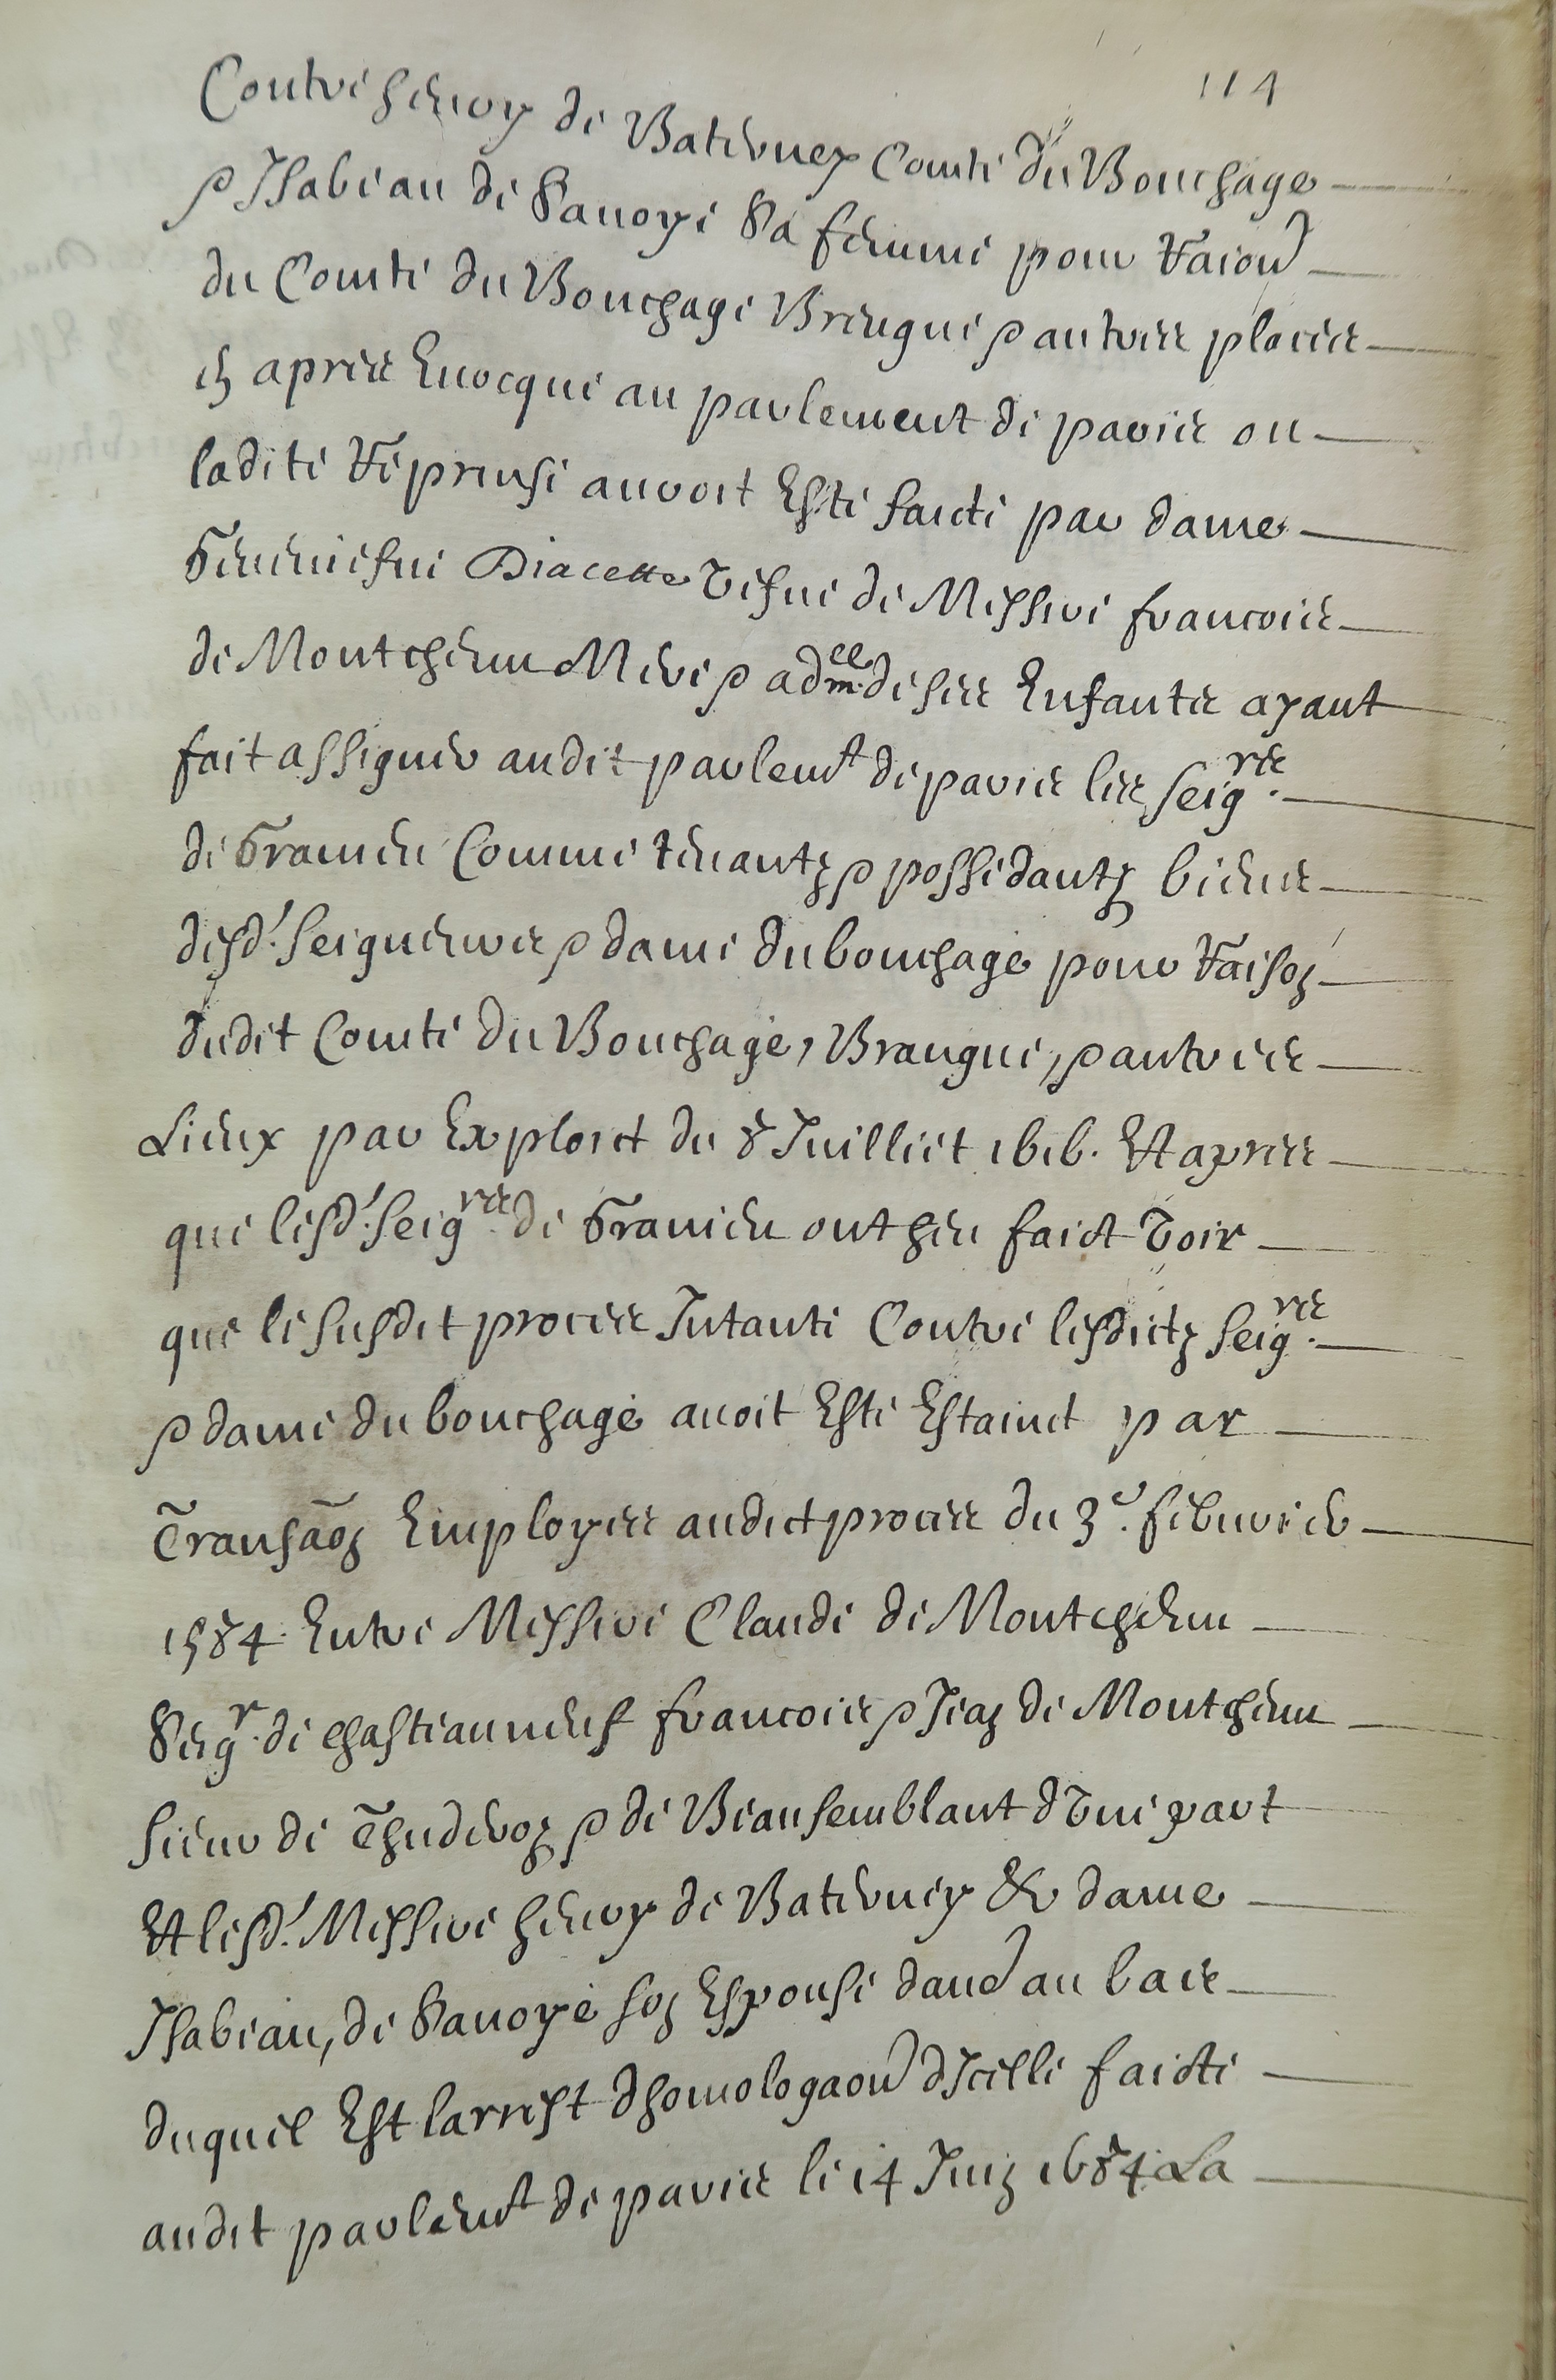 114
Contre henry de Baterney Comte du Bouchage
& Isabeau de Sauoye Sa femme pour Raiõn
du Comté du Bouchage Brengue & autres places
et apres Euocqué au parlement de paris ou
ladite Reprinse auroit Esté faicte par dame
Geneuiefue Diacette Vefue de Messire francois
de Montchenu Mere & admce de ses Enfants ayant
fait assigner audit parlemt de paris les seigrs
de Gramieu Comme tenantz & possedantz biens
desd. seigneurs & dame du bouchage pour Raison
dudit Comté du Bouchage, Brangue, & autres
Lieux par Exploict du 8 Juilliet 1616. Et apres
que lesd. seigrs de Gramieu ont heu faict Voir
que le susdit proces Intanté Contre lesdictz seigrs
& dame du bouchage auoit Esté Estainct par
Transãon Employee audict proces du 3e. feburier
1584 Entre Messire Claude de Montchenu
Seigr de chasteauneuf francois & Jean de Montchenu
sieur de Thuderoz & de Beausemblant d Vne part
Et lesd. Messire henry de Baterney & dame
Isabeau, de Sauoye son Espouse dauẽ au bas
duquel Est larrest dhomologaõn dIcelle faicte
audit parlemt de paris le 14 Juin 1684 La